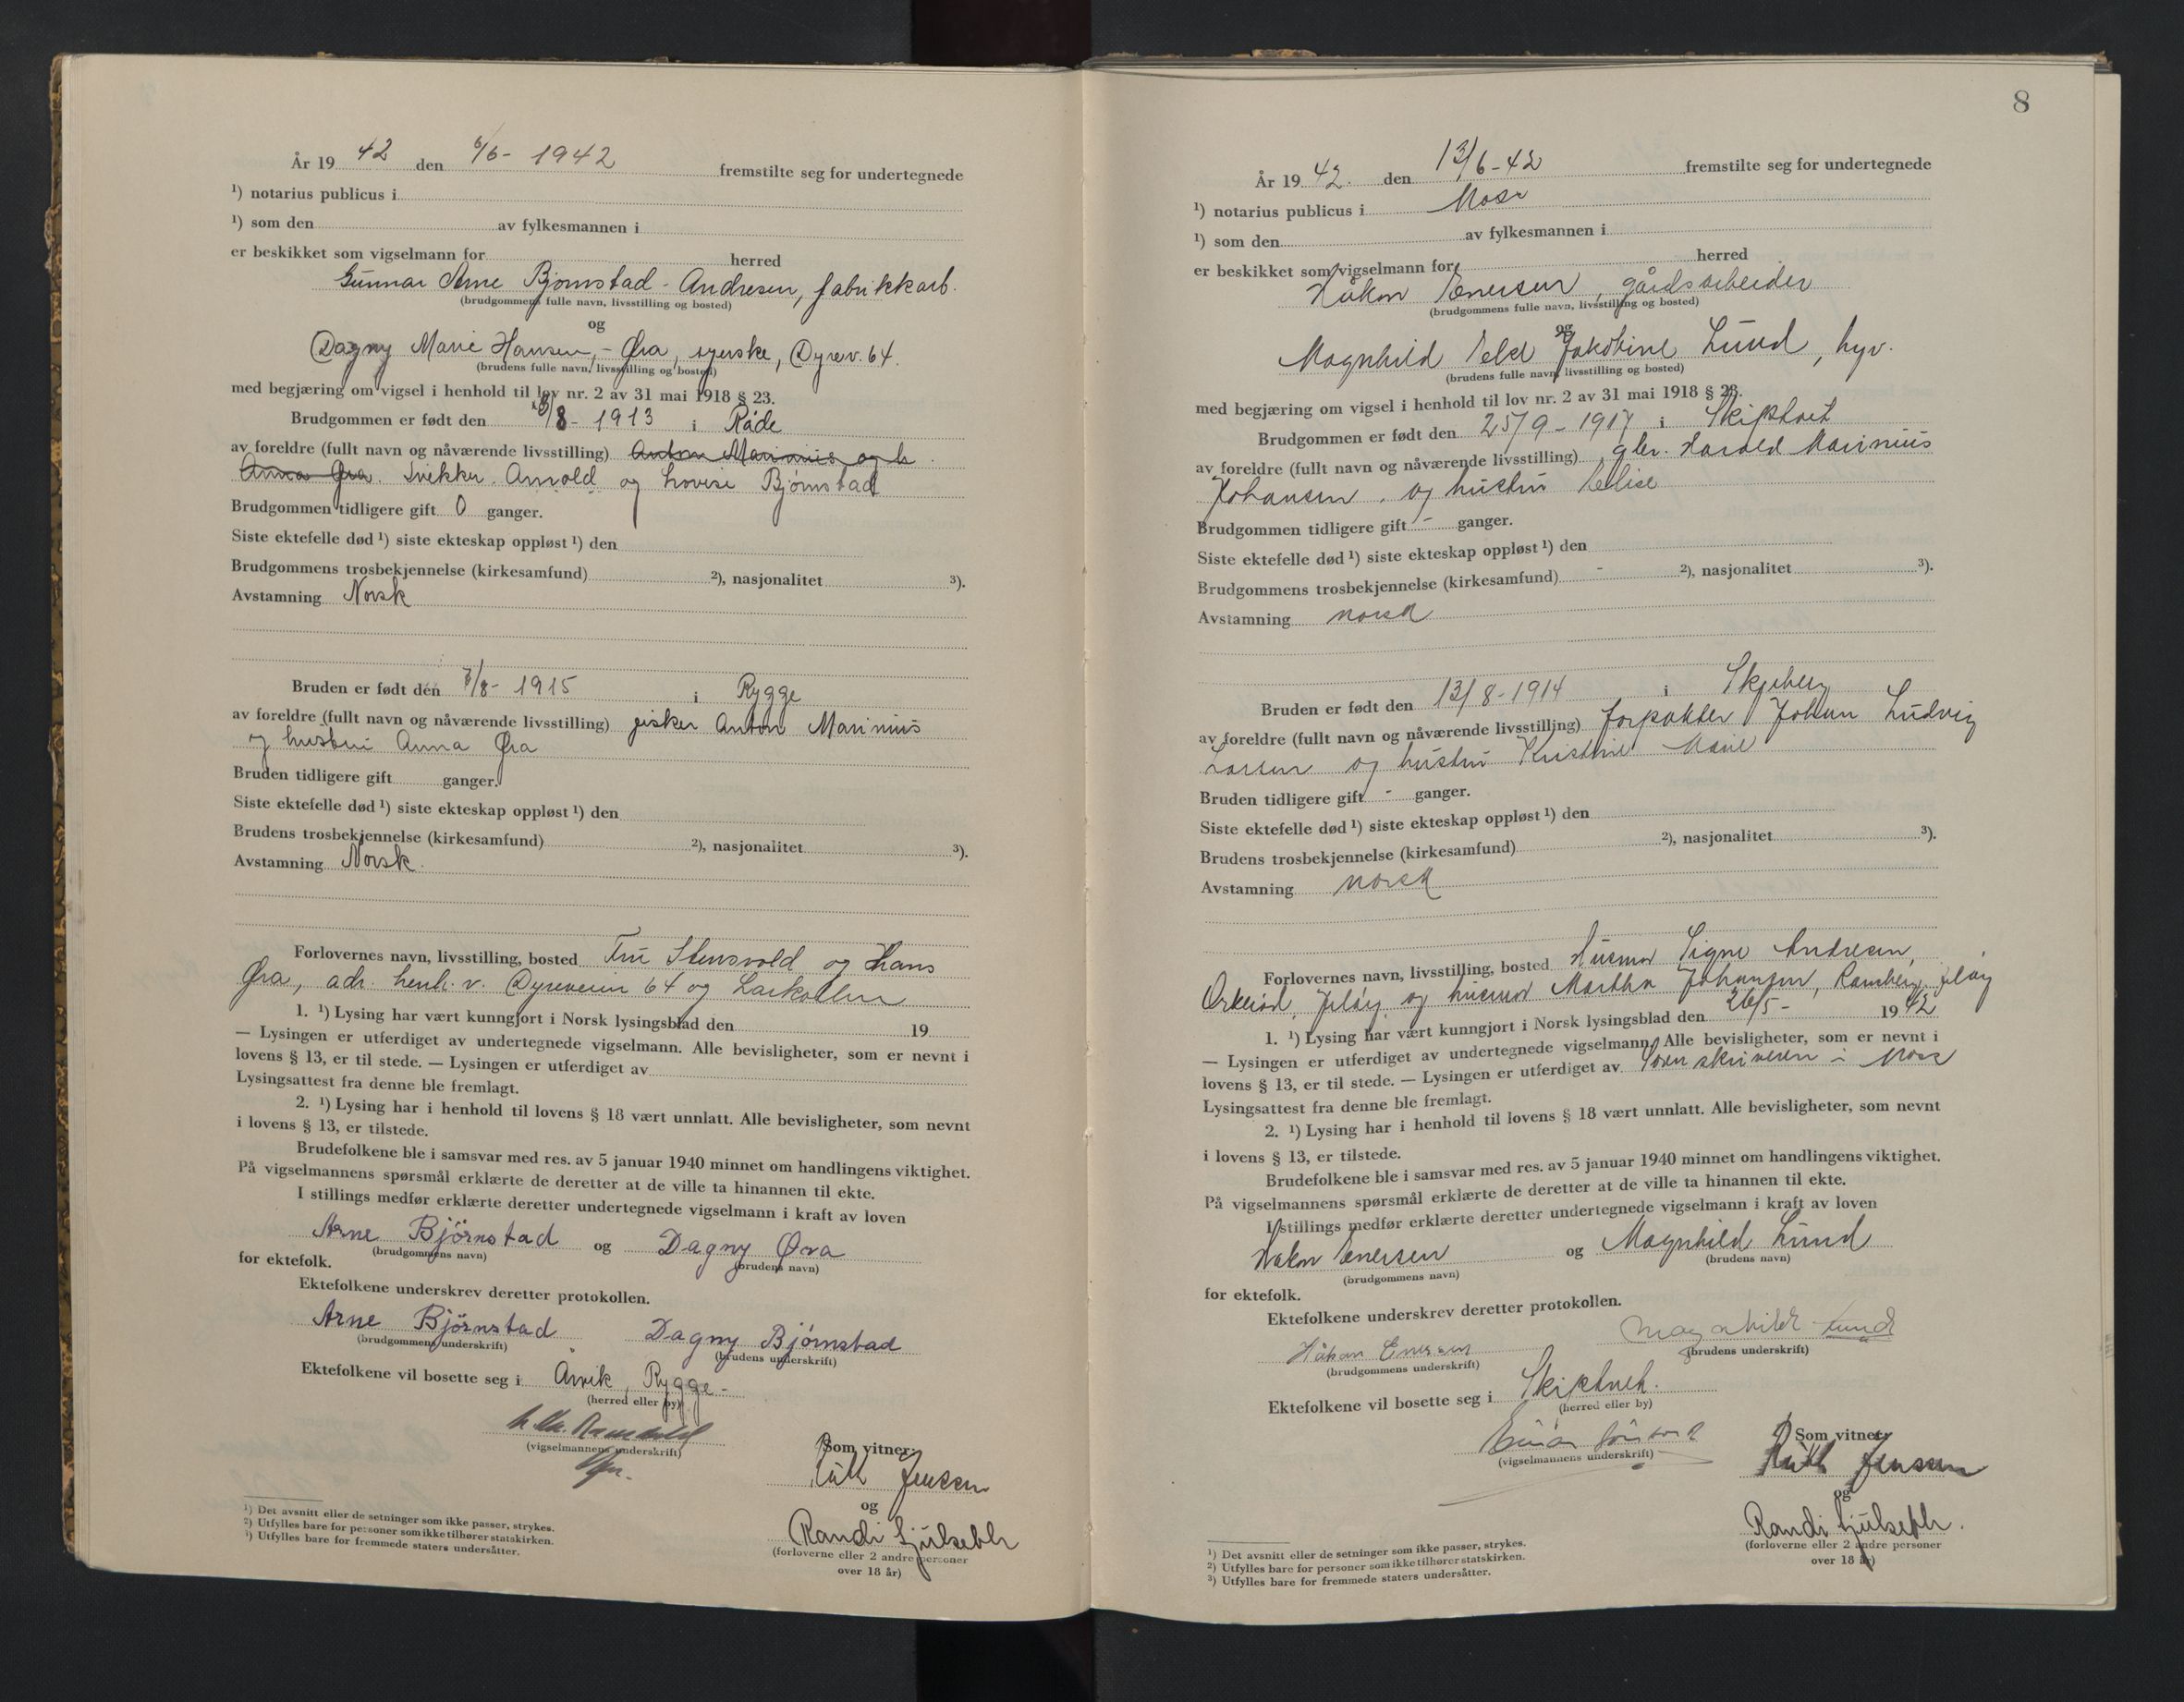 År 19 42 den 6/6 - 1942 fremstilte seg for undertegnede
¹) notarius publicus i
¹) som den av fylkesmannen i
er beskikket som vigselmann for herred
Gunnar Arne Bjørnstad - Andresen, fabrikkarb.
(brudgommens fulle navn, livsstilling og bosted)
og
Dagny Marie Hansen, - Øra, syerske, Dyrev. 64.
(brudens fulle navn, livsstilling og bosted)
med begjæring om vigsel i henhold til lov nr. 2 av 31 mai 1918 § 23.
Brudgommen er født den /8 - 1913 i Råde
av foreldre (fullt navn og nåværende livsstilling) Anton Marinius og h
Anna Øra. Snekker Arnold og Lovise Bjørnstad
Brudgommen tidligere gift 0 ganger.
Siste ektefelle død ¹) siste ekteskap oppløst ¹) den
Brudgommens trosbekjennelse (kirkesamfund) ²), nasjonalitet ³).
Avstamning Norsk
Bruden er født den 7/8 - 1915 i Rygge
av foreldre (fullt navn og nåværende livsstilling) fisker Anton Marinius
og hustru Anna Øra
Bruden tidligere gift ganger.
Siste ektefelle død ¹) siste ekteskap oppløst ¹) den
Brudens trosbekjennelse (kirkesamfund) ²), nasjonalitet ³).
Avstamning Norsk.
Forlovernes navn, livsstilling, bosted Fru Stensvold og Hans
Øra, adr. henh. v. Dyreveien 64 og Larkollen
1. ¹) Lysing har vært kunngjort i Norsk lysingsblad den 19
— Lysingen er utferdiget av undertegnede vigselmann. Alle bevisligheter, som er nevnt i
lovens § 13, er til stede. — Lysingen er utferdiget av
Lysingsattest fra denne ble fremlagt.
2. ¹) Lysing har i henhold til lovens § 18 vært unnlatt. Alle bevisligheter, som nevnt
i lovens § 13, er tilstede.
Brudefolkene ble i samsvar med res. av 5 januar 1940 minnet om handlingens viktighet.
På vigselmannens spørsmål erklærte de deretter at de ville ta hinannen til ekte.
I stillings medfør erklærte deretter undertegnede vigselmann i kraft av loven
Arne Bjørnstad og Dagny Øra
(brudgommens navn) (brudens navn)
for ektefolk.
Ektefolkene underskrev deretter protokollen.
Arne Bjørnstad Dagny Bjørnstad
(brudgommens underskrift) (brudens underskrift)
Ektefolkene vil bosette seg i Årvik, Rygge -
(herred eller by)
(vigselmannens underskrift)
Som vitner:
Ruth Jensen
og
Randi Gjulseth
(forloverne eller 2 andre personer
over 18 år)
¹) Det avsnitt eller de setninger som ikke passer, strykes.
²) Utfylles bare for personer som ikke tilhører statskirken.
³) Utfylles bare for fremmede staters undersåtter.
8
År 19 42. den 13/6 - 42 fremstilte seg for undertegnede
¹) notarius publicus i Moss
¹) som den av fylkesmannen i
er beskikket som vigselmann for herred
Håkon Enersen, gårdsarbeider
(brudgommens fulle navn, livsstilling og bosted)
og
Magnhild Eld Jakobine Lund, hyv.
(brudens fulle navn, livsstilling og bosted)
med begjæring om vigsel i henhold til lov nr. 2 av 31 mai 1918 § 23.
Brudgommen er født den 25/9 - 1917 i Skiptvet
av foreldre (fullt navn og nåværende livsstilling) gbr. Harald Marinius
Johansen, og hustru Elise
Brudgommen tidligere gift - ganger.
Siste ektefelle død ¹) siste ekteskap oppløst ¹) den
Brudgommens trosbekjennelse (kirkesamfund) - ²), nasjonalitet ³).
Avstamning norsk
Bruden er født den 13/8 - 1914 i Skjeberg
av foreldre (fullt navn og nåværende livsstilling) forpakter Johan Ludvig
Larsen og hustru Kristine Marie
Bruden tidligere gift - ganger.
Siste ektefelle død ¹) siste ekteskap oppløst ¹) den
Brudens trosbekjennelse (kirkesamfund) ²), nasjonalitet ³).
Avstamning norsk
Forlovernes navn, livsstilling, bosted Husmor Signe Andresen,
Orkerød, Jeløy og husmor Martha Johansen, Ramberg, Jeløy
1. ¹) Lysing har vært kunngjort i Norsk lysingsblad den 26/5 - 19 42
— Lysingen er utferdiget av undertegnede vigselmann. Alle bevisligheter, som er nevnt i
lovens § 13, er til stede. — Lysingen er utferdiget av Sorenskriveren i Moss
Lysingsattest fra denne ble fremlagt.
2. ¹) Lysing har i henhold til lovens § 18 vært unnlatt. Alle bevisligheter, som nevnt
i lovens § 13, er tilstede.
Brudefolkene ble i samsvar med res. av 5 januar 1940 minnet om handlingens viktighet.
På vigselmannens spørsmål erklærte de deretter at de ville ta hinannen til ekte.
I stillings medfør erklærte deretter undertegnede vigselmann i kraft av loven
Håkon Enersen og Magnhild Lund
(brudgommens navn) (brudens navn)
for ektefolk.
Ektefolkene underskrev deretter protokollen.
Håkon Enersen Magnhild Lund
(brudgommens underskrift) (brudens underskrift)
Ektefolkene vil bosette seg i Skiptvet.
(herred eller by)
(vigselmannens underskrift)
Som vitner:
Ruth Jensen
og
Randi Gjulseth.
(forloverne eller 2 andre personer
over 18 år)
¹) Det avsnitt eller de setninger som ikke passer, strykes.
²) Utfylles bare for personer som ikke tilhører statskirken.
³) Utfylles bare for fremmede staters undersåtter.